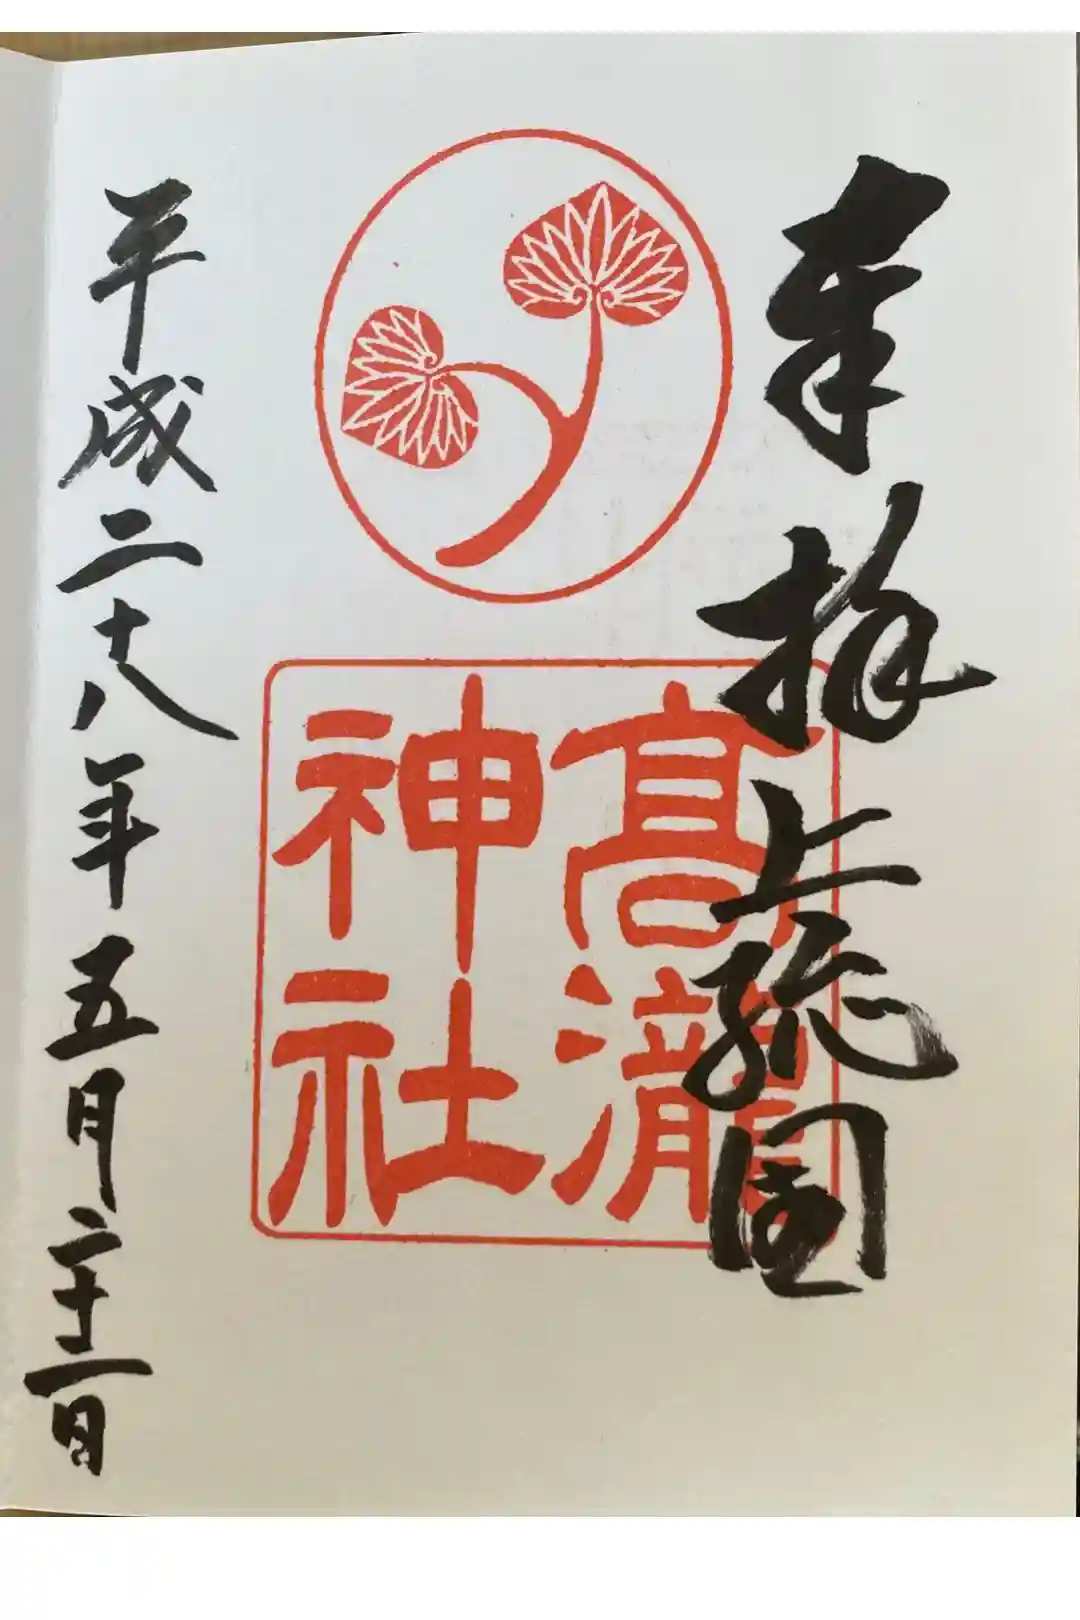 奉拝 上総国
高瀧
神社
平成二十八年五月二十一日